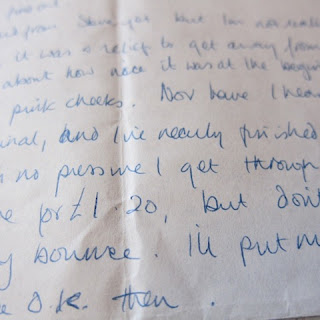 from but I'm not really
it was a relief to get away from
about how nice it was at the begin
pink cheeks. Nor have I hear
inal, and I've nearly finished
no pressure I get through
e for £1.20, but don't
y bounce. I'll put m
e O.K. then.